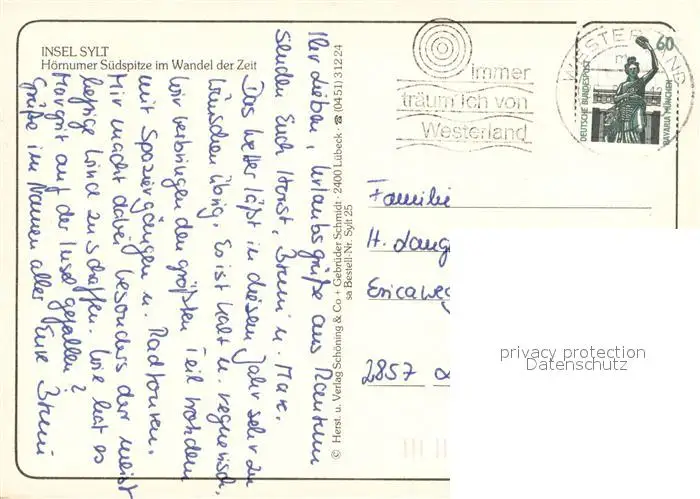 INSEL SYLT
Hörnumer Südspitze im Wandel der Zeit
Ihr Lieben, Urlaubsgrüße aus Rantum
senden Euch Horst, Bruni u. Marc.
Das Wetter läßt in diesem Jahr sehr zu
wünschen übrig. Es ist kalt u. regnerisch.
Wir verbringen den größten Teil trotzdem
mit Spaziergängen u. Radtouren.
Mir macht dabei besonders der meist
heftige Wind zu schaffen. Wie hat es
Margrit auf der Insel gefallen?
Grüße im Namen aller Eure Bruni
© Herst. u. Verlag Schöning & Co + Gebrüder Schmidt · 2400 Lübeck · ☎ (0451) 31224
sa Bestell-Nr. Sylt 25
immer
träum ich von
Westerland
WESTERLAND
60
DEUTSCHE BUNDESPOST
BAVARIA MÜNCHEN
Familie
H. Lang
Ericaweg
2857
privacy protection
Datenschutz